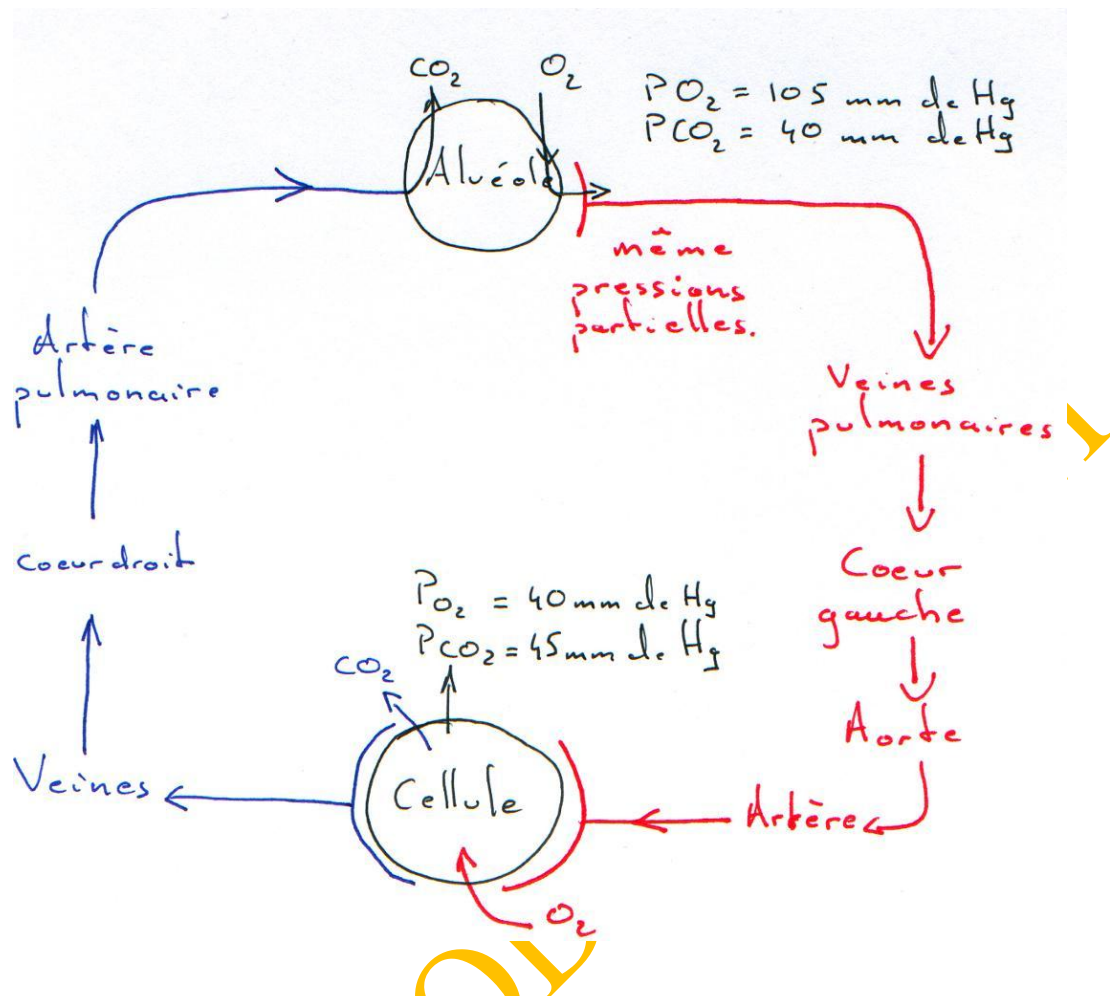 CO2
O2
PO2 = 105 mm de Hg
PCO2 = 40 mm de Hg
Alvéole
même
pressions
partielles.
Artère
pulmonaire
Veines
pulmonaires
coeur droit
Coeur
gauche
PO2 = 40 mm de Hg
PCO2 = 45 mm de Hg
CO2
Aorte
Veines
Cellule
Artère
O2